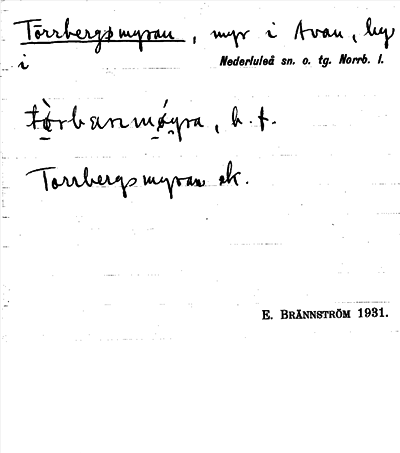 Törrbergsmyran, myr i Avan, by
i Nederluleå sn. o. tg. Norrb. l.
b. f.
Torrbergsmyran ek.
E. BRÄNNSTRÖM 1931.